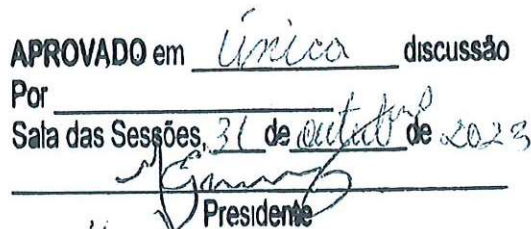 APROVADO em Única discussão
Por
Sala das Sessões, 31 de outubro de 2023
Presidente